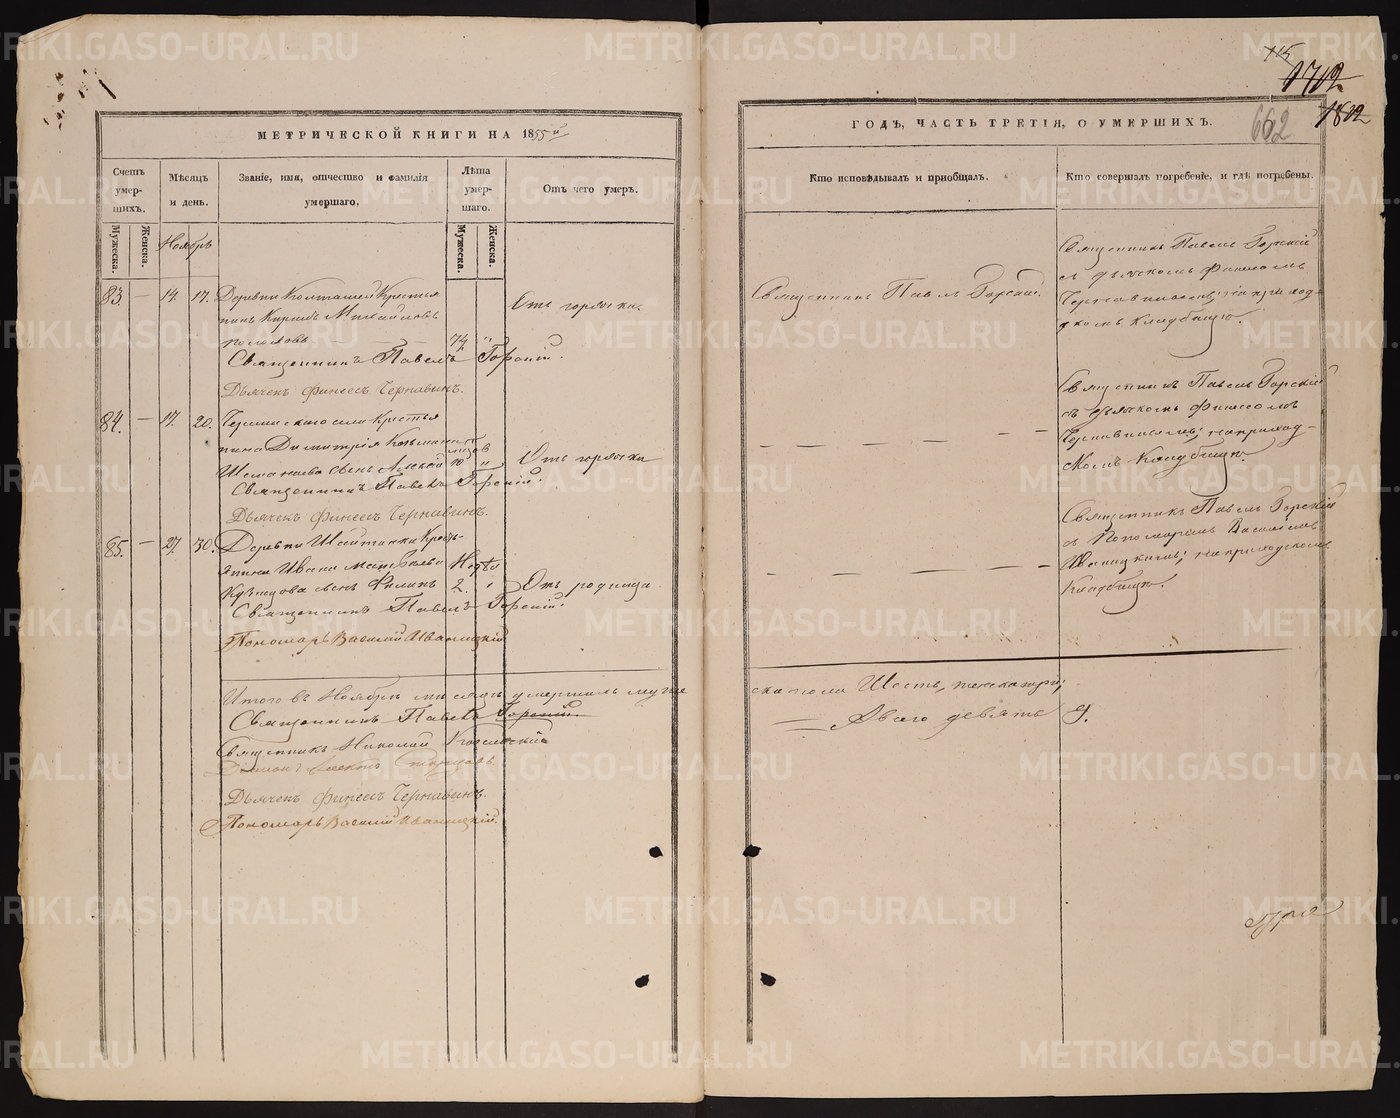 115
1712
1802
662
МЕТРИЧЕСКОЙ КНИГИ НА 1855й
ГОДЪ, ЧАСТЬ ТРЕТІЯ, О УМЕРШИХЪ.
Счетъ умер-шихъ.
Мужеска.
Женска.
Мѣсяцъ и день.
Званіе, имя, отчество и фамилія умершаго,
Лѣта умер-шаго.
Мужеска.
Женска.
Отъ чего умеръ.
Кто исповѣдывалъ и приобщалъ.
Кто совершалъ погребеніе, и гдѣ погребены.
Ноябрь
83. — 14. 17. Деревни Колташей Крестья
нинъ Кирилъ Михайловъ
74. "
Отъ горячки.
Священникъ Павелъ Горскій.
Дьячекъ Финеесъ Чернавинъ.
Священникъ Павелъ Горскій.
Священникъ Павелъ Горскій
съ дьячкомъ Финеесомъ
Чернавинымъ; на приход-
скомъ кладбищѣ.
84. — 17. 20. села Крестья
нина Димитрія Козьмина
сынъ Алексѣй 10 "
Отъ горячки
Священникъ Павелъ Горскій.
Дьячекъ Финеесъ Чернавинъ.
Священникъ Павелъ Горскій
съ дьячкомъ Финеесомъ
Чернавинымъ; на приход-
скомъ кладбищѣ.
85. — 27. 30. Деревни Шайтанки Кресть-
янина Ивана Матвѣева Недѣл
Кузнецова сынъ Филипъ 2. "
Отъ родимца.
Священникъ Павелъ Горскій.
Пономарь Василій Иваницкій
Священникъ Павелъ Горскій
съ Пономаремъ Василіемъ
Иваницкимъ; на приходскомъ
кладбищѣ.
Итого въ Ноябрѣ мѣсяцѣ умершихъ муже
ска пола Шесть, женска три;
— Авсего девять 9.
Священникъ Павелъ Горскій.
Священникъ Николай
Дьячекъ Финеесъ Чернавинъ.
Пономарь Василій Иваницкій.
METRIKI.GASO-URAL.RU